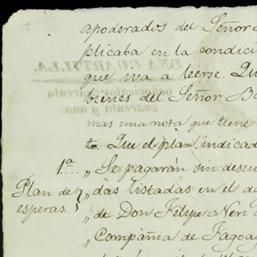 apoderados del Señor
plicaba en la condici
que va a leerse. Qu
bienes del Señor Ba
mas una nota que tiene
to. Que el plan indicad
1ª „ Se pagarán sin descu
Plan de esperas. „ das listadas en el d
„ de Don Felipe Neri
„ Compañia de Fagoa